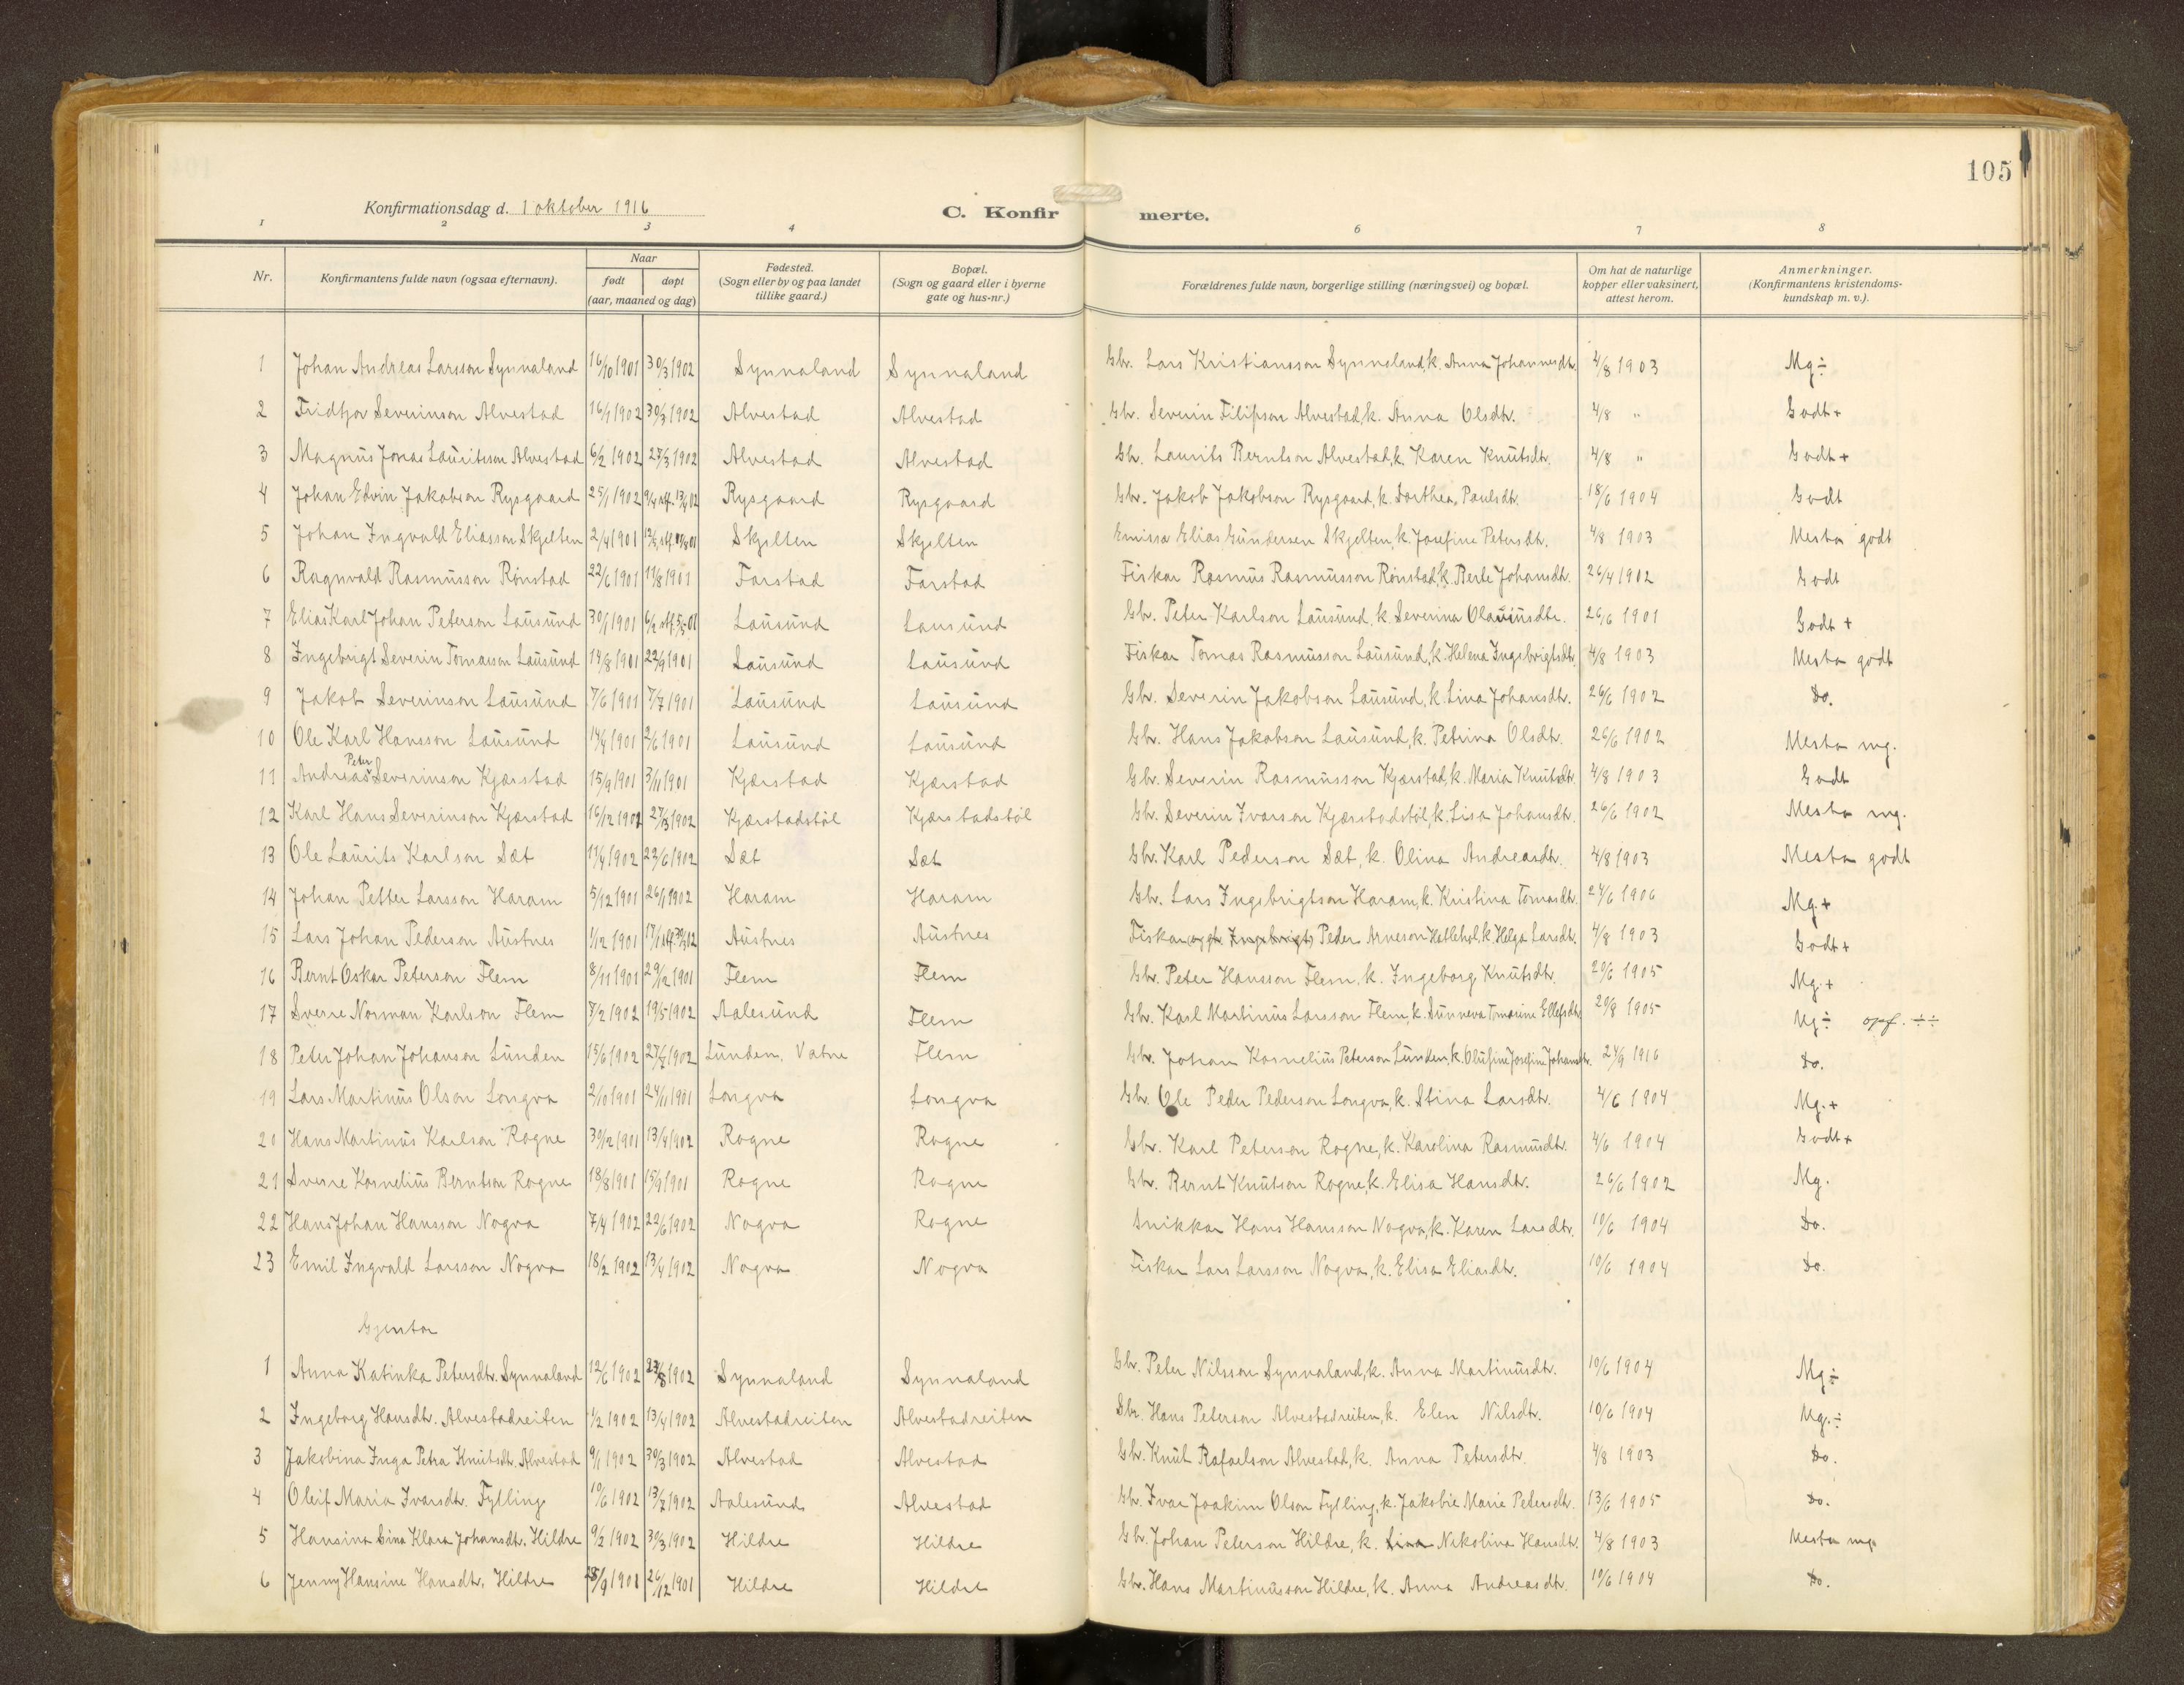 105
Konfirmationsdag d. 1 oktober 1916 C. Konfirmerte.
1 2 3 4 6 7 8
Nr. Konfirmantens fulde navn (ogsaa efternavn). Naar født døpt (aar, maaned og dag) Fødested. (Sogn eller by og paa landet tillike gaard.) Bopæl. (Sogn og gaard eller i byerne gate og hus-nr.) Forældrenes fulde navn, borgerlige stilling (næringsvei) og bopæl. Om hat de naturlige kopper eller vaksinert, attest herom. Anmerkninger. (Konfirmantens kristendoms-kundskap m. v.).
1 Johan Andreas Larsson Synnaland 16/10 1901 30/3 1902 Synnaland Synnaland Gbr. Lars Kristiansson Synnaland, k. Anna Johannesdtr. 4/8 1903 Mg ÷
2 Fridtjov Severinson Alvestad 16/1 1902 30/3 1902 Alvestad Alvestad Gbr. Severin Filipson Alvestad, k. Anna Olsdtr. 4/8 " Godt +
3 Magnus Jonas Lauritsson Alvestad 6/2 1902 27/3 1902 Alvestad Alvestad Gbr. Laurits Berntson Alvestad, k. Karen Knutsdtr. 4/8 " Godt +
4 Johan Edvin Jakobson Rysgaard 25/1 1902 9/4 stf. 13/4 02 Rysgaard Rysgaard Gbr. Jakob Jakobson Rysgaard, k. Dorthea Paulsdtr. 18/6 1904 Godt
5 Johan Ingvald Eliasson Skjelten 2/4 1901 Skjelten Skjelten Emissa Elias Gundersen Skjelten, k. Josefine Petersdtr. 4/8 1903 Mesta godt
6 Ragnvald Rasmusson Rønstad 22/6 1901 11/8 1901 Farstad Farstad Fiskar Rasmus Rasmusson Rønstad, k. Berte Johansdtr. 26/4 1902 Godt
7 Elias Karl Johan Peterson Lausund 30/1 1901 6/2 stf. 5/5 01 Lausund Lausund Gbr. Peter Karlson Lausund, k. Severina Olausdtr. 26/6 1901 Godt +
8 Ingebrigt Severin Tomasson Lausund 14/8 1901 22/9 1901 Lausund Lausund Fiskar Tomas Rasmusson Lausund, k. Helena Ingebrigtsdtr. 4/8 1903 Mesta godt
9 Jakob Severinson Lausund 7/6 1901 7/7 1901 Lausund Lausund Gbr. Severin Jakobson Lausund, k. Lina Johansdtr. 26/6 1902 Do.
10 Ole Karl Hansson Lausund 14/4 1901 2/6 1901 Lausund Lausund Gbr. Hans Jakobson Lausund, k. Petrina Olsdtr. 26/6 1902 Mesta mg.
11 Andreas Peter Severinson Kjærstad 15/9 1901 3/11 1901 Kjærstad Kjærstad Gbr. Severin Rasmusson Kjærstad, k. Maria Knutsdtr. 4/8 1903 Godt
12 Karl Hans Severinson Kjærstad 16/12 1901 27/3 1902 Kjærstadstøl Kjærstadstøl Gbr. Severin Ivarson Kjærstadstøl, k. Lisa Johansdtr. 26/6 1902 Mesta mg.
13 Ole Laurits Karlson Sæt 11/4 1902 22/6 1902 Sæt Sæt Gbr. Karl Pederson Sæt, k. Olina Andreasdtr. 4/8 1903 Mesta godt
14 Johan Petter Larsson Haram 5/12 1901 26/1 1902 Haram Haram Gbr. Lars Ingebrigtson Haram, k. Kristina Tomasdtr. 24/6 1906 Mg. +
15 Lars Johan Pederson Austnes 1/12 1901 Austnes Austnes Fiskar Peder Arneson Hatlehol, k. Helga Larsdtr. 4/8 1903 Godt +
16 Bernt Oskar Peterson Flem 8/11 1901 29/12 1901 Flem Flem Gbr. Peter Hansson Flem, k. Ingeborg Knutsdtr. 20/6 1905 Mg. +
17 Sverre Norman Karlson Flem 7/2 1902 19/5 1902 Aalesund Flem Gbr. Karl Martinus Larsson Flem, k. Sunneva Tomarine Ellefsdtr. 20/8 1905 Mg ÷ opf. ÷÷
18 Peter Johan Johanson Lunden 15/6 1902 27/7 1902 Lunden, Vatne Flem Gbr. Johan Kornelius Peterson Lunden, k. Olufine Josefine Johansdtr. 24/9 1916 Do.
19 Lars Martinus Olson Longva 2/10 1901 24/11 1901 Longva Longva Gbr. Ole Peder Pederson Longva, k. Stina Larsdtr. 4/6 1904 Mg. +
20 Hans Martinus Karlson Rogne 30/12 1901 13/4 1902 Rogne Rogne Gbr. Karl Peterson Rogne, k. Karolina Rasmusdtr. 4/6 1904 Godt +
21 Sverre Kornelius Berntson Rogne 18/8 1901 15/9 1901 Rogne Rogne Gbr. Bernt Knutson Rogne, k. Elisa Hansdtr. 26/6 1902 Mg.
22 Hans Johan Hansson Nogva 7/4 1902 22/6 1902 Nogva Rogne Snikkar Hans Hansson Nogva, k. Karen Larsdtr. 10/6 1904 Do.
23 Emil Ingvald Larsson Nogva 18/2 1902 13/4 1902 Nogva Nogva Fiskar Lars Larsson Nogva, k. Elisa Eliasdtr. 10/6 1904 Do.
Gjentor
1 Anna Katinka Petersdtr. Synnaland 12/6 1902 1902 Synnaland Synnaland Gbr. Peter Nilsson Synnaland, k. Anna Martinusdtr. 10/6 1904 Mg ÷
2 Ingeborg Hansdtr. Alvestadreiten 1/2 1902 13/4 1902 Alvestadreiten Alvestadreiten Gbr. Hans Peterson Alvestadreiten, k. Elen Nilsdtr. 10/6 1904 Mg. ÷
3 Jakobina Inga Petra Knutsdtr. Alvestad 9/1 1902 30/3 1902 Alvestad Alvestad Gbr. Knut Rafaelson Alvestad, k. Anna Petersdtr. 4/8 1903 Do.
4 Oleif Maria Ivarsdtr. Fylling 10/6 1902 13/7 1902 Aalesund Alvestad Gbr. Ivar Joakim Olson Fylling, k. Jakobie Marie Petersdtr. 13/6 1905 Do.
5 Hansina Lina Klara Johansdtr. Hildre 9/2 1902 30/3 1902 Hildre Hildre Gbr. Johan Peterson Hildre, k. Lina Nikolina Hansdtr. 4/8 1903 Mesta mg.
6 Jenny Hansine Hansdtr. Hildre 28/9 1901 26/12 1901 Hildre Hildre Gbr. Hans Martinusson Hildre, k. Anna Andreasdtr. 10/6 1904 Do.